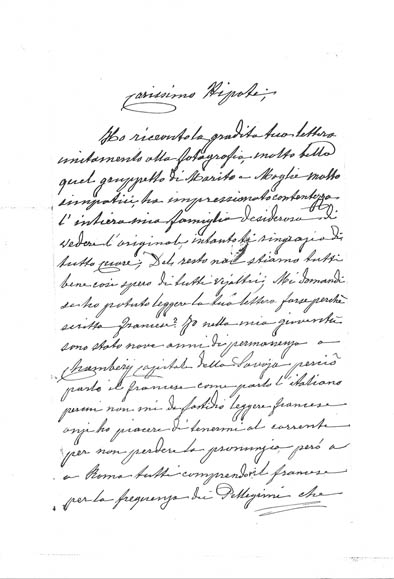 carissimo Nipote;
Ho ricevuto la gradita tua lettera
unitamente alla fotografia molto bello
quel gruppetto di Marito e Moglie molto
simpatici, ha impressionato contentezza
l'intiera mia famiglia desiderosa di
vedere l'original, intanto ti ringrazio di
tutto cuore; Del resto noi stiamo tutti
bene così spero di tutti; Mi domandi
se ho potuto leggere la tua lettera forse perché
scritta francese? Io nella mia gioventù
sono stato nove anni di permanenza a
Chambery capitale della Savoja perciò
parlo il francese come parlo l'italiano
non mi da fastidio leggere francese
anzi ho piacere di tenermi al corrente
per non perdere la pronunzia però a
a Roma tutti comprendon il francese
per la frequenza dei Pellegrini che